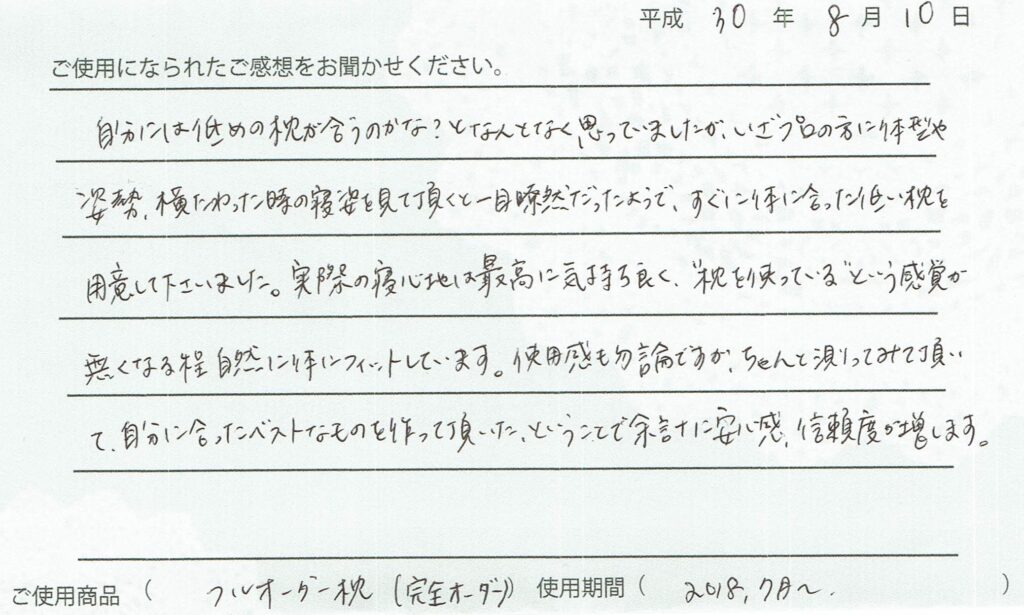 平成 30 年 8 月 10 日
ご使用になられたご感想をお聞かせください。
自分には低めの枕が合うのかな?となんとなく思っていましたが、いざプロの方に体型や
姿勢、横たわった時の寝姿を見て頂くと一目瞭然だったようで、すぐに体に合った低い枕を
用意して下さいました。実際の寝心地は最高に気持ち良く、"枕を使っている"という感覚が
無くなる程自然に体にフィットしています。使用感も勿論ですが、ちゃんと測ってみて頂い
て、自分に合ったベストなものを作って頂いた、ということで余計に安心感、信頼度が増します。
ご使用商品 ( フルオーダー枕 (完全オーダー)) 使用期間 ( 2018, 7月〜 )